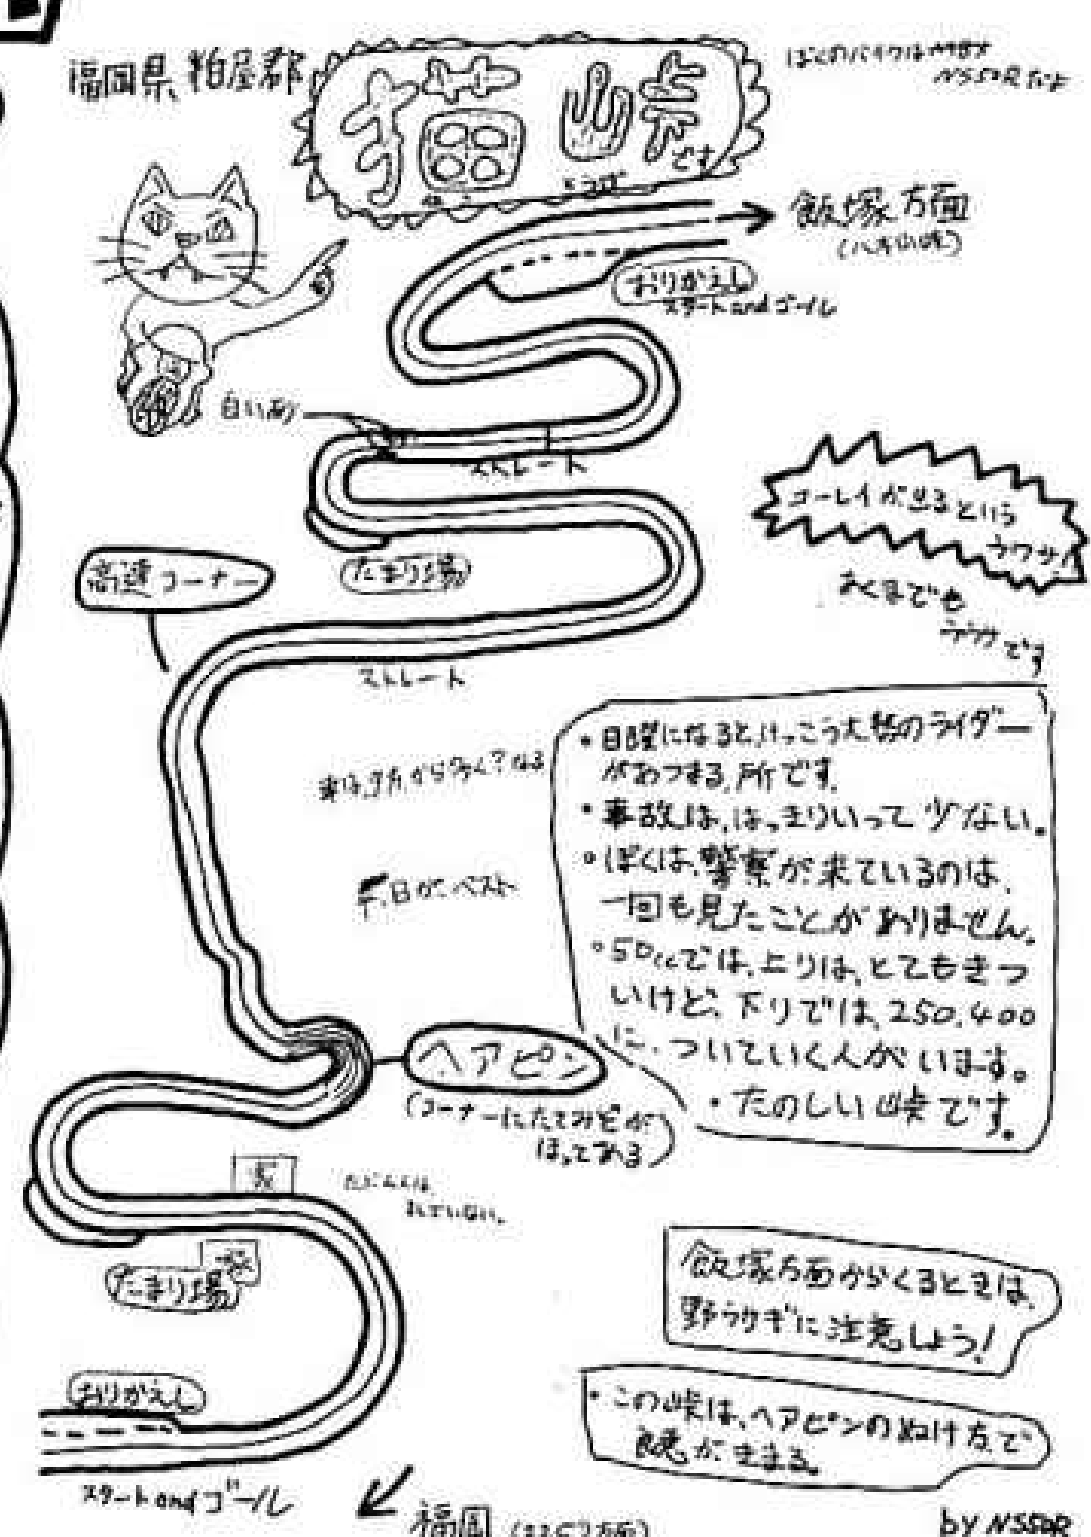 福岡県 粕屋郡
猫峠
です
ぼくのバイクは
NS50Rだよ
飯塚方面
(八木山峠)
おりかえし
スタートandゴール
白い
ストレート
ゴーレイが出るという
ウワサ!
あくまでも
ウワサです
高速コーナー
たまり場
ストレート
車は、夕方から多く?なる
平日が、ベスト
・日曜になると、けっこう大勢のライダー
があつまる所です。
・事故は、はっきりいって少ない。
・ぼくは、警察が来ているのは、
一回も見たことがありません。
・50ccでは、上りは、とてもきつ
いけど、下りでは、250、400
に、ついていく人がいます。
・たのしい峠です。
ヘアピン
(コーナーにたてみぞが
ほってある)
家
たぶん人は、
いない。
家
たまり場
飯塚方面からくるときは、
野ウサギに注意しよう!
おりかえし
・この峠は、ヘアピンのぬけ方で
が、きまる。
スタートandゴール
福岡
by NS50R